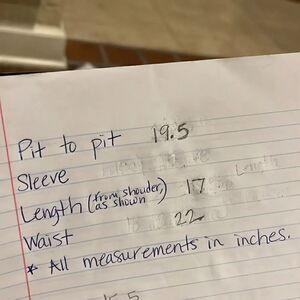 Pit to pit 19.5
Sleeve
Length (from shouder, as shown) 17
Waist 22
* All measurements in inches.